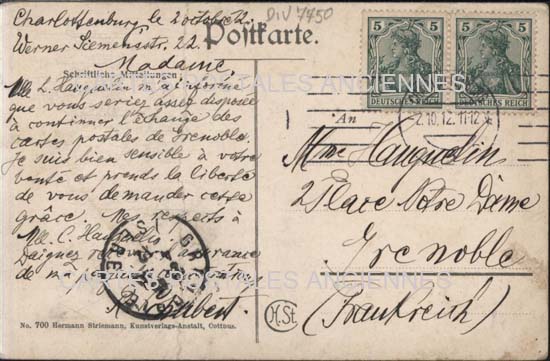 DIV 7450
Charlottenburg, le 2 octobre 12.
Werner Siemensstr. 22.
Postkarte.
Madame
Schriftliche Mitteilungen
Mlle L. Hauquelin m'a informé
que vous seriez assez disposée
à continuer l'échange des
cartes postales de Grenoble.
Je suis bien sensible à votre
bonté et prends la liberté
de vous demander cette
grâce. Mes respects à
Mlle. C. Hauquelin
Daignez
de ma
5 5
DEUTSCHES REICH DEUTSCHES REICH
2.10.12. 11-12
An
Mme Hauquelin
2 Place Notre Dame
Grenoble
(Frankreich)
H.St
No. 700 Hermann Striemann, Kunstverlags-Anstalt, Cottbus.
CARTES POSTALES ANCIENNES
CARTES POSTALES ANCIENNES